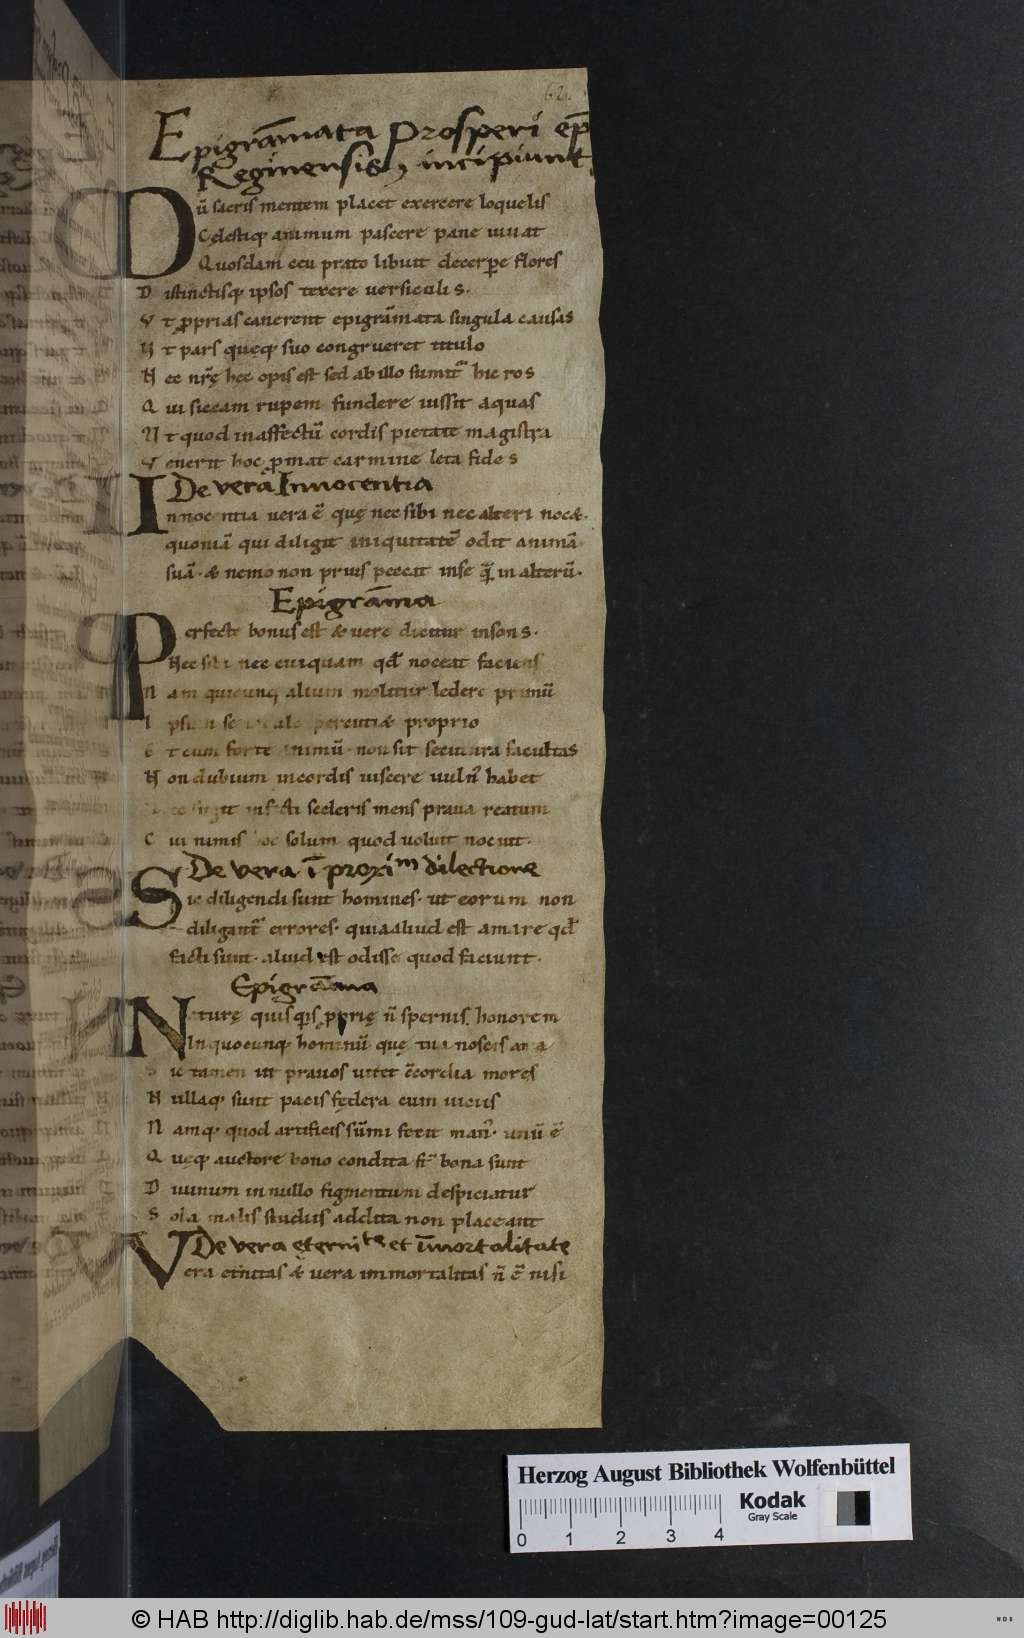 62.
Epigrāmata Prosperi ep̄
Reginensis, incipiunt.
Dū sacris mentem placet exercere loquelis
Cęlestiq; animum pascere pane iuuat
Quosdam ceu prato libuit decerpe flores
Distinctisq; ipsos texere uersiculis.
Vt pprias canerent epigrāmata singula causas
Et pars quęq; suo congrueret titulo
Nec nr̄ę hec opis est sed ab illo sumit hic ros
Qui siccam rupem fundere iussit aquas
Vt quod in affectū cordis pietate magistra
Venerit hoc pmat carmine leta fides
De vera Innocentia
Innocentia uera ē quę nec sibi nec alteri nocæ.
quoniā qui diligit iniquitatē odit animā
suā. & nemo non prius peccat in se q̄ in alterū.
Epigrāma
Perfecte bonus est & uere dicitur insons.
Nec sibi nec cuiquam qd̄ noceat faciens
Nam quicunq; alium molitur ledere primū
Ipsum se proprio
Et cum forte animū non sit secutura facultas
Non dubium in cordis uiscere uuln̄ habet
sceleris mens praua reatum
Cui nimis hoc solum quod uoluit nocuit.
De vera ī proximm dilectione
Sic diligendi sunt homines. ut eorum non
diligant errores. quia aliud est amare qd̄
facti sunt. aliud est odisse quod faciunt.
Epigrāma
Naturę quisqis pprię n̄ spernis honorem
In quocunq; hominū quę tua noscis ama
Sic tamen ut prauos uitet c̄cordia mores
Nullaq; sunt pacis fędera cum uiciis
Namq; quod artificis sūmi fecit man. unū ē
Quęq; auctore bono condita st̄ bona sunt
Diuinum in nullo figmentum despiciatur
Sola malis studiis addita non placeant
De vera ęternitte et īmortalitate
Vera et̄nitas & uera immortalitas n̄ ē nisi
Herzog August Bibliothek Wolfenbüttel
Kodak
Gray Scale
0 1 2 3 4
© HAB http://diglib.hab.de/mss/109-gud-lat/start.htm?image=00125